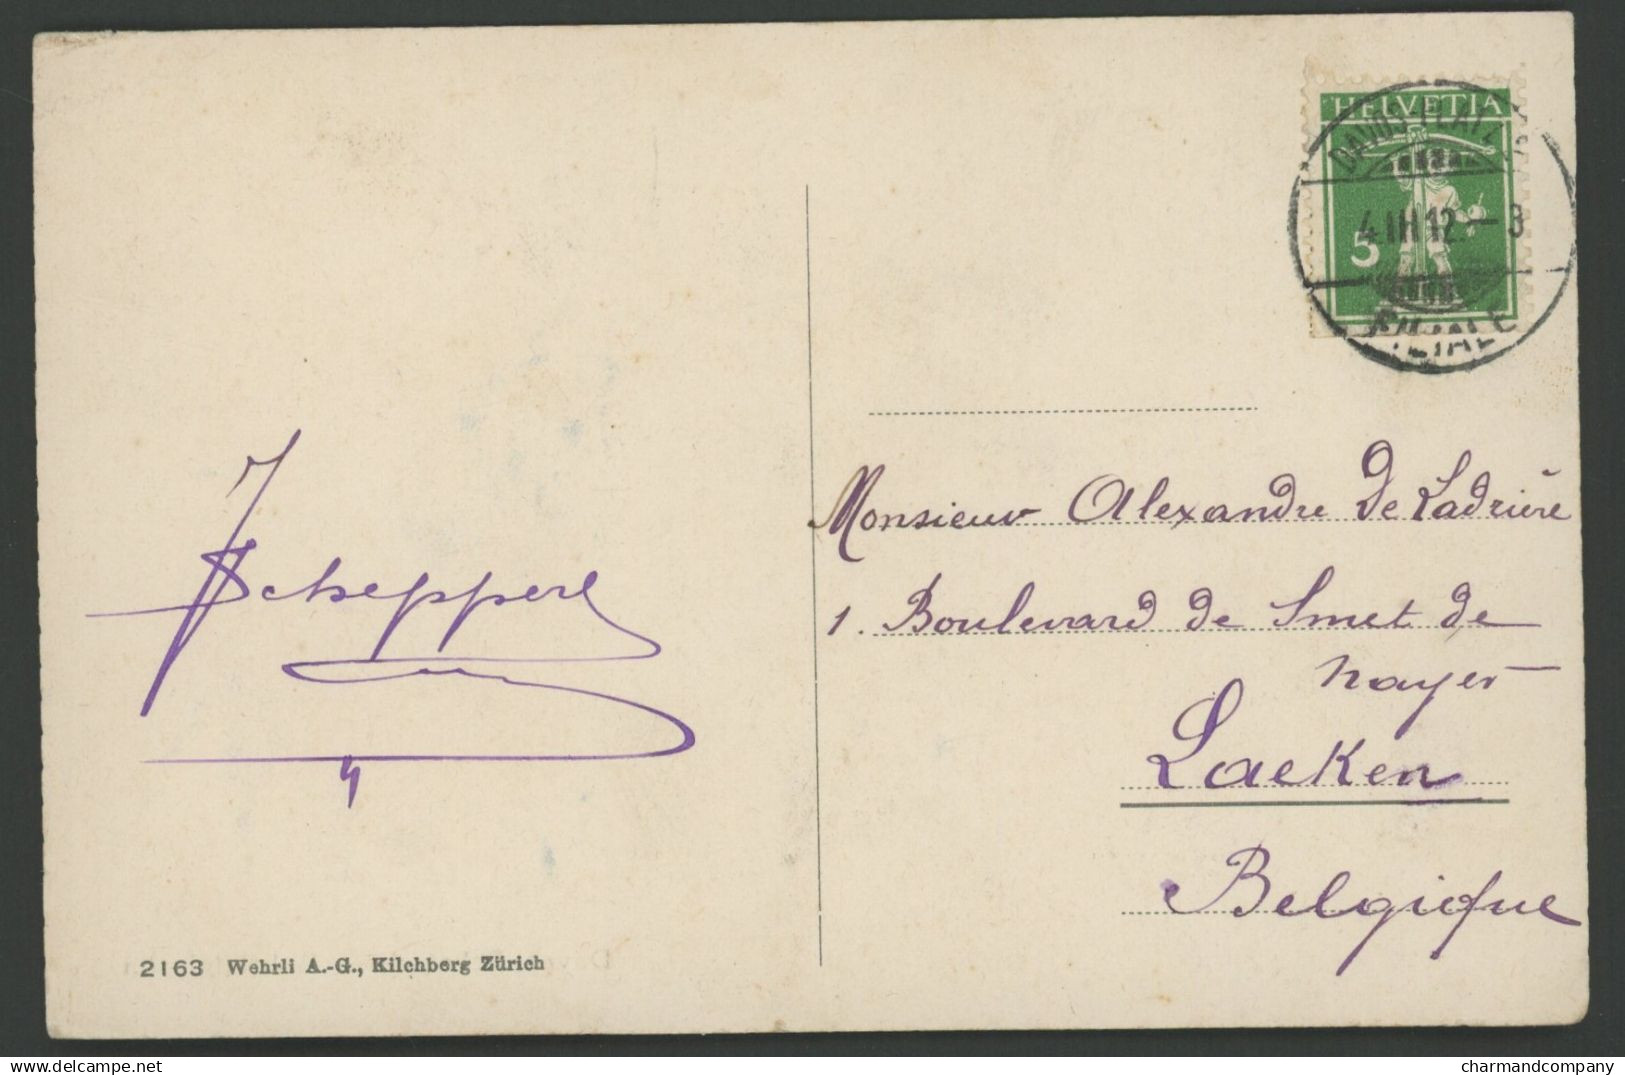 HELVETIA
DAVOS-PLATZ
4 III 12.–3
5
FILIALE
Monsieur Alexandre De Ladrière
1. Boulevard de Smet de
nayer
Laeken
Belgique
2163 Wehrli A.-G., Kilchberg Zürich
charmandcompany